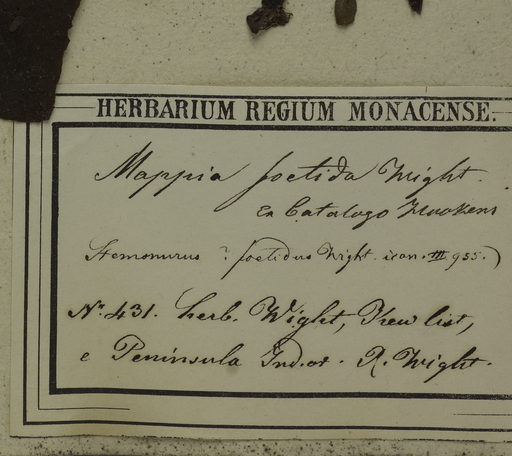 HERBARIUM REGIUM MONACENSE.
Mappia foetida Wight.
Ex Catalogo Hookeri
Stemonurus ? foetidus Wight. icon. III 955.)
Nº 431. herb. Wight, Kew list,
e Peninsula Ind. or. R. Wight.